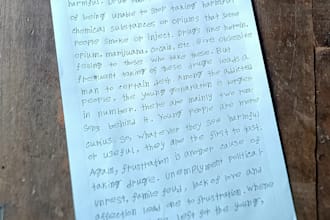 harmful. Drug
of being unable to stop taking harmful
chemical substances or opiums that some
people smoke or inject. Drugs like heroin,
opium, marijuana, cocaa, etc. give obsessive
feeling to those who take these. But
frequent taking of these drugs leads a
man to certain deth. Among the addicted
people, the young generation is largest
in number. there are mainly two reasons
behind it. Young people are more
curius. So, whatever they see harmful
or useful, they are the first to tast.
Again, frustration is another cause of
taking drugs. Unemployment political
unrest, family feuld, lack of love and
affection lead one to frustration. Where
left for the young,